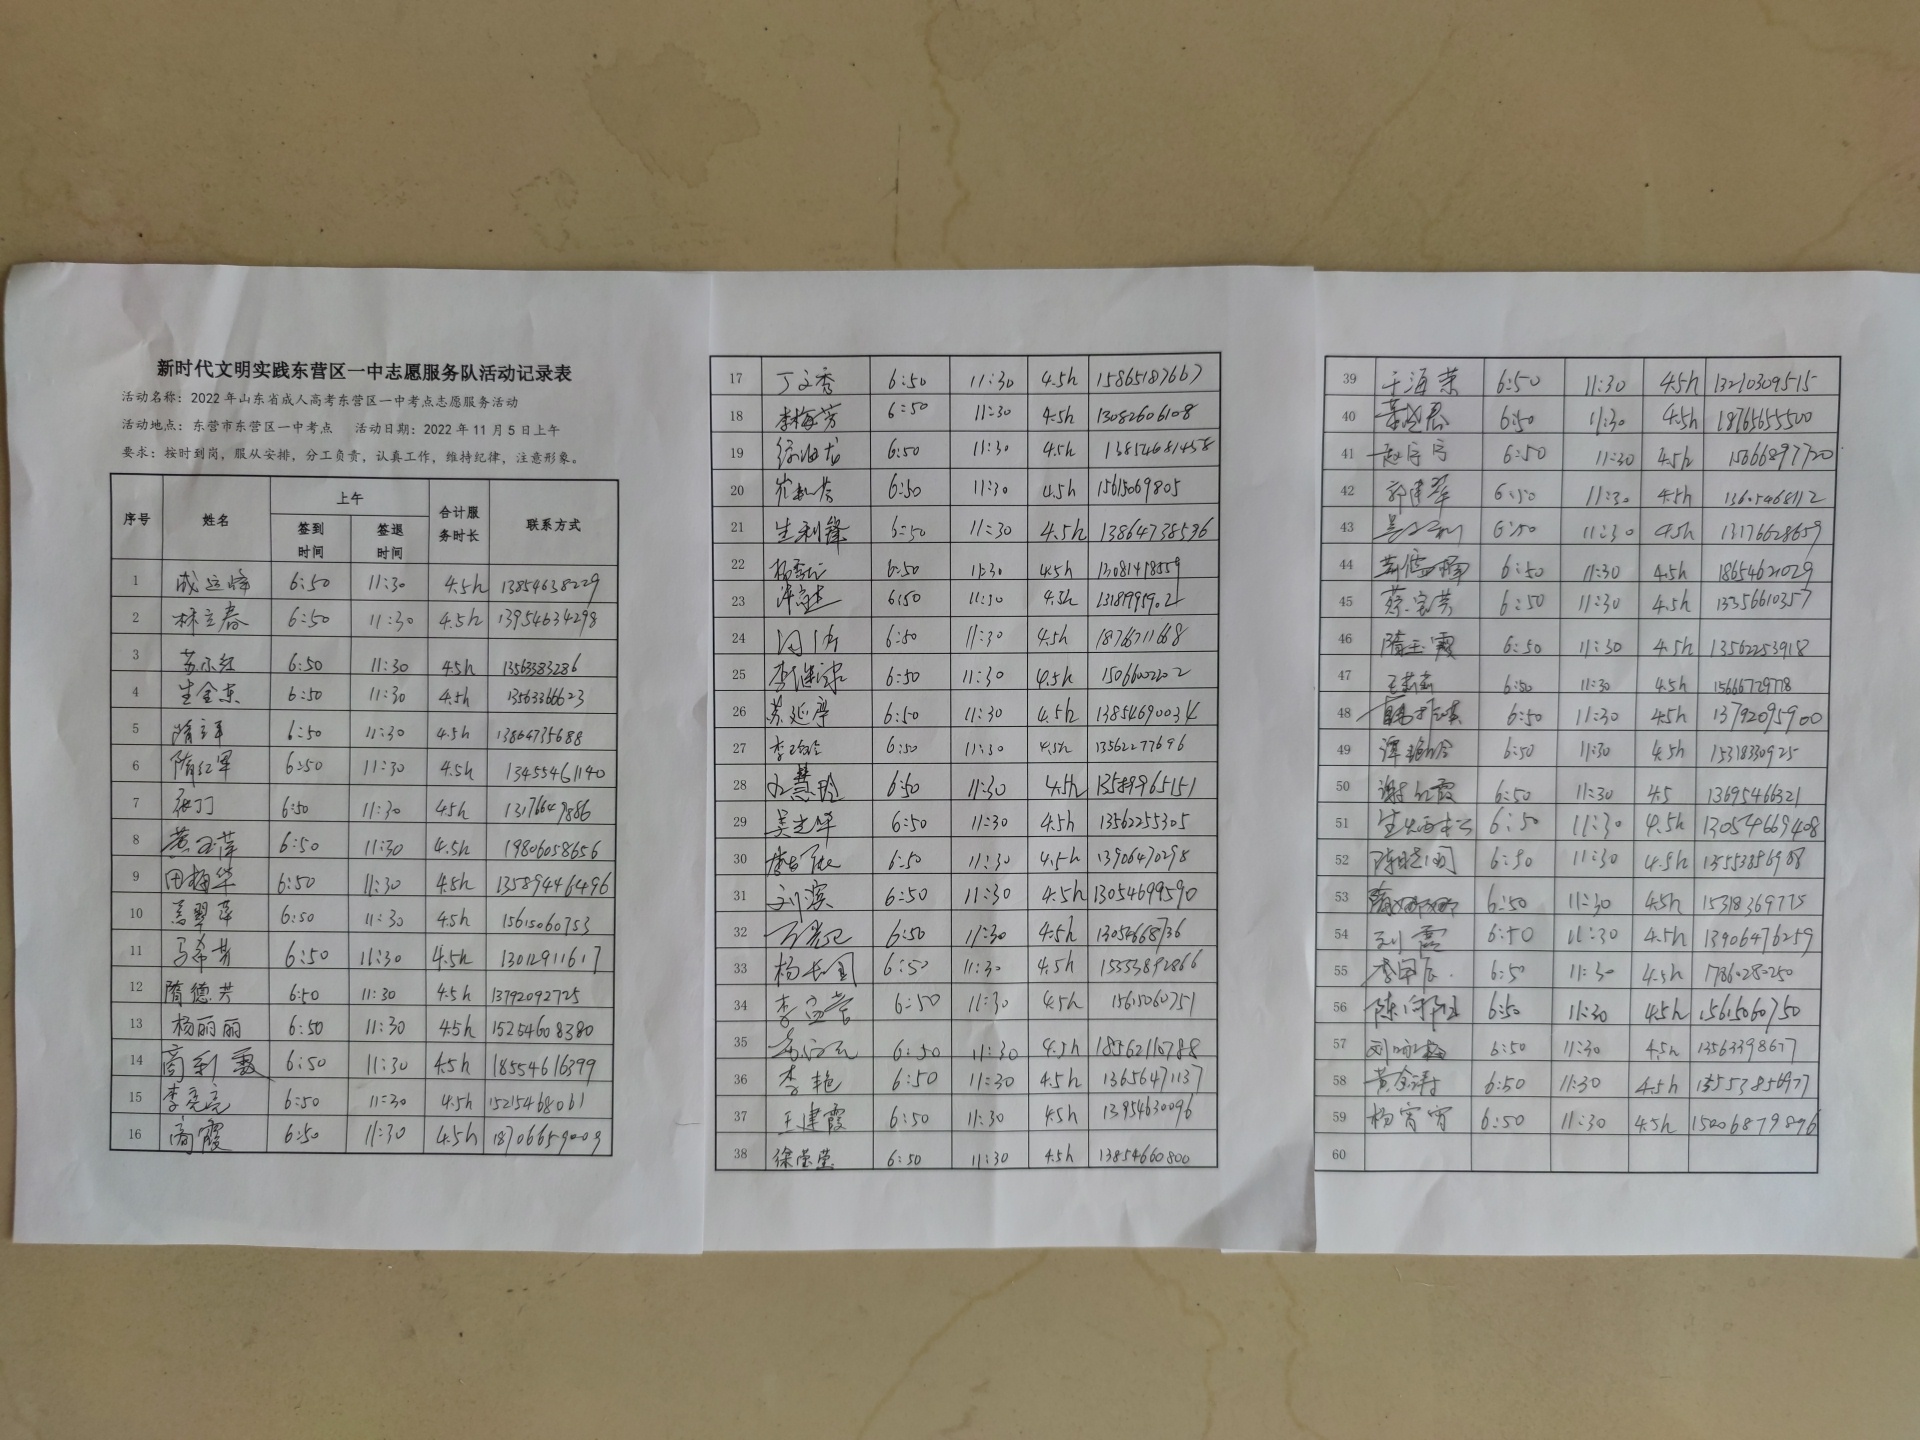 新时代文明实践东营区一中志愿服务队活动记录表
活动名称：2022年山东省成人高考东营区一中考点志愿服务活动
活动地点：东营市东营区一中考点 活动日期：2022年11月5日上午
要求：按时到岗，服从安排，分工负责，认真工作，维持纪律，注意形象。
序号 姓名 上午 合计服务时长 联系方式
签到时间 签退时间
1 成运峰 6:50 11:30 4.5h 13854638229
2 林立春 6:50 11:30 4.5h 13954634298
3 6:50 11:30 4.5h 13563383286
4 生金东 6:50 11:30 4.5h 13563366623
5 6:50 11:30 4.5h 13864735688
6 隋红军 6:50 11:30 4.5h 13455461140
7 张丁 6:50 11:30 4.5h 13176649886
8 黄玉萍 6:50 11:30 4.5h 19806058656
9 田梅华 6:50 11:30 4.5h 13589446496
10 高翠萍 6:50 11:30 4.5h 15615060753
11 马希芳 6:50 11:30 4.5h 13012911617
12 隋德芳 6:50 11:30 4.5h 13792092725
13 杨丽丽 6:50 11:30 4.5h 15254608380
14 商利敏 6:50 11:30 4.5h 18554616399
15 李亮亮 6:50 11:30 4.5h 15215468061
16 商霞 6:50 11:30 4.5h 18706659009
17 丁文秀 6:50 11:30 4.5h 15865187667
18 李梅芳 6:50 11:30 4.5h 13082606108
19 6:50 11:30 4.5h 13854681458
20 6:50 11:30 4.5h 15615069805
21 生利锋 6:50 11:30 4.5h 13864738596
22 6:50 11:30 4.5h 13081418559
23 6:50 11:30 4.5h
24 闫涛 6:50 11:30 4.5h 18766711668
25 6:50 11:30 4.5h 15066002202
26 苏延厚 6:50 11:30 4.5h 13854690034
27 李玲玲 6:50 11:30 4.5h 13562277696
28 6:50 11:30 4.5h 13589965151
29 吴光华 6:50 11:30 4.5h 13562255305
30 6:50 11:30 4.5h 13906470298
31 刘滨 6:50 11:30 4.5h 13054699590
32 6:50 11:30 4.5h 13054668736
33 杨长国 6:50 11:30 4.5h 15553892866
34 6:50 11:30 4.5h 15615060751
35 6:50 11:30 4.5h 18562116788
36 李艳 6:50 11:30 4.5h 13656471137
37 王建霞 6:50 11:30 4.5h 13954630096
38 徐莹莹 6:50 11:30 4.5h 13854660800
39 于海荣 6:50 11:30 4.5h 13210309515
40 6:50 11:30 4.5h 18765655500
41 赵宁宁 6:50 11:30 4.5h 15666897720
42 郭建翠 6:50 11:30 4.5h 13605468112
43 6:50 11:30 4.5h 13176628659
44 6:50 11:30 4.5h 18654621029
45 蔡宝芳 6:50 11:30 4.5h 13356610357
46 隋玉霞 6:50 11:30 4.5h 13562253918
47 王莉莉 6:50 11:30 4.5h 15666729778
48 6:50 11:30 4.5h 13792095900
49 谭艳玲 6:50 11:30 4.5h 15318330925
50 谢红霞 6:50 11:30 4.5 13695466321
51 6:50 11:30 4.5h 13054669408
52 6:50 11:30 4.5h
53 隋娜娜 6:50 11:30 4.5h 15318369775
54 刘霞 6:50 11:30 4.5h 13906476259
55 6:50 11:30 4.5h 17860280250
56 6:50 11:30 4.5h 15615060750
57 刘咏梅 6:50 11:30 4.5h 13563398677
58 黄金涛 6:50 11:30 4.5h 15553856977
59 杨宵宵 6:50 11:30 4.5h 15006879896
60